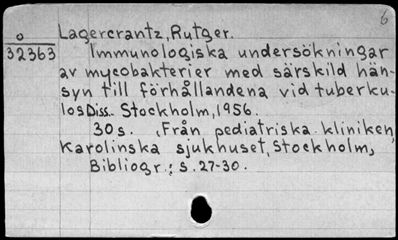 6
o Lagercrantz, Rutger.
32363 Immunologiska undersökningar
av mycobakterier med särskild hän-
syn till förhållandena vid tuberku-
los Diss. Stockholm, 1956.
30 s. (Från pediatriska kliniken,
Karolinska sjukhuset, Stockholm)
Bibliogr.: s. 27-30.